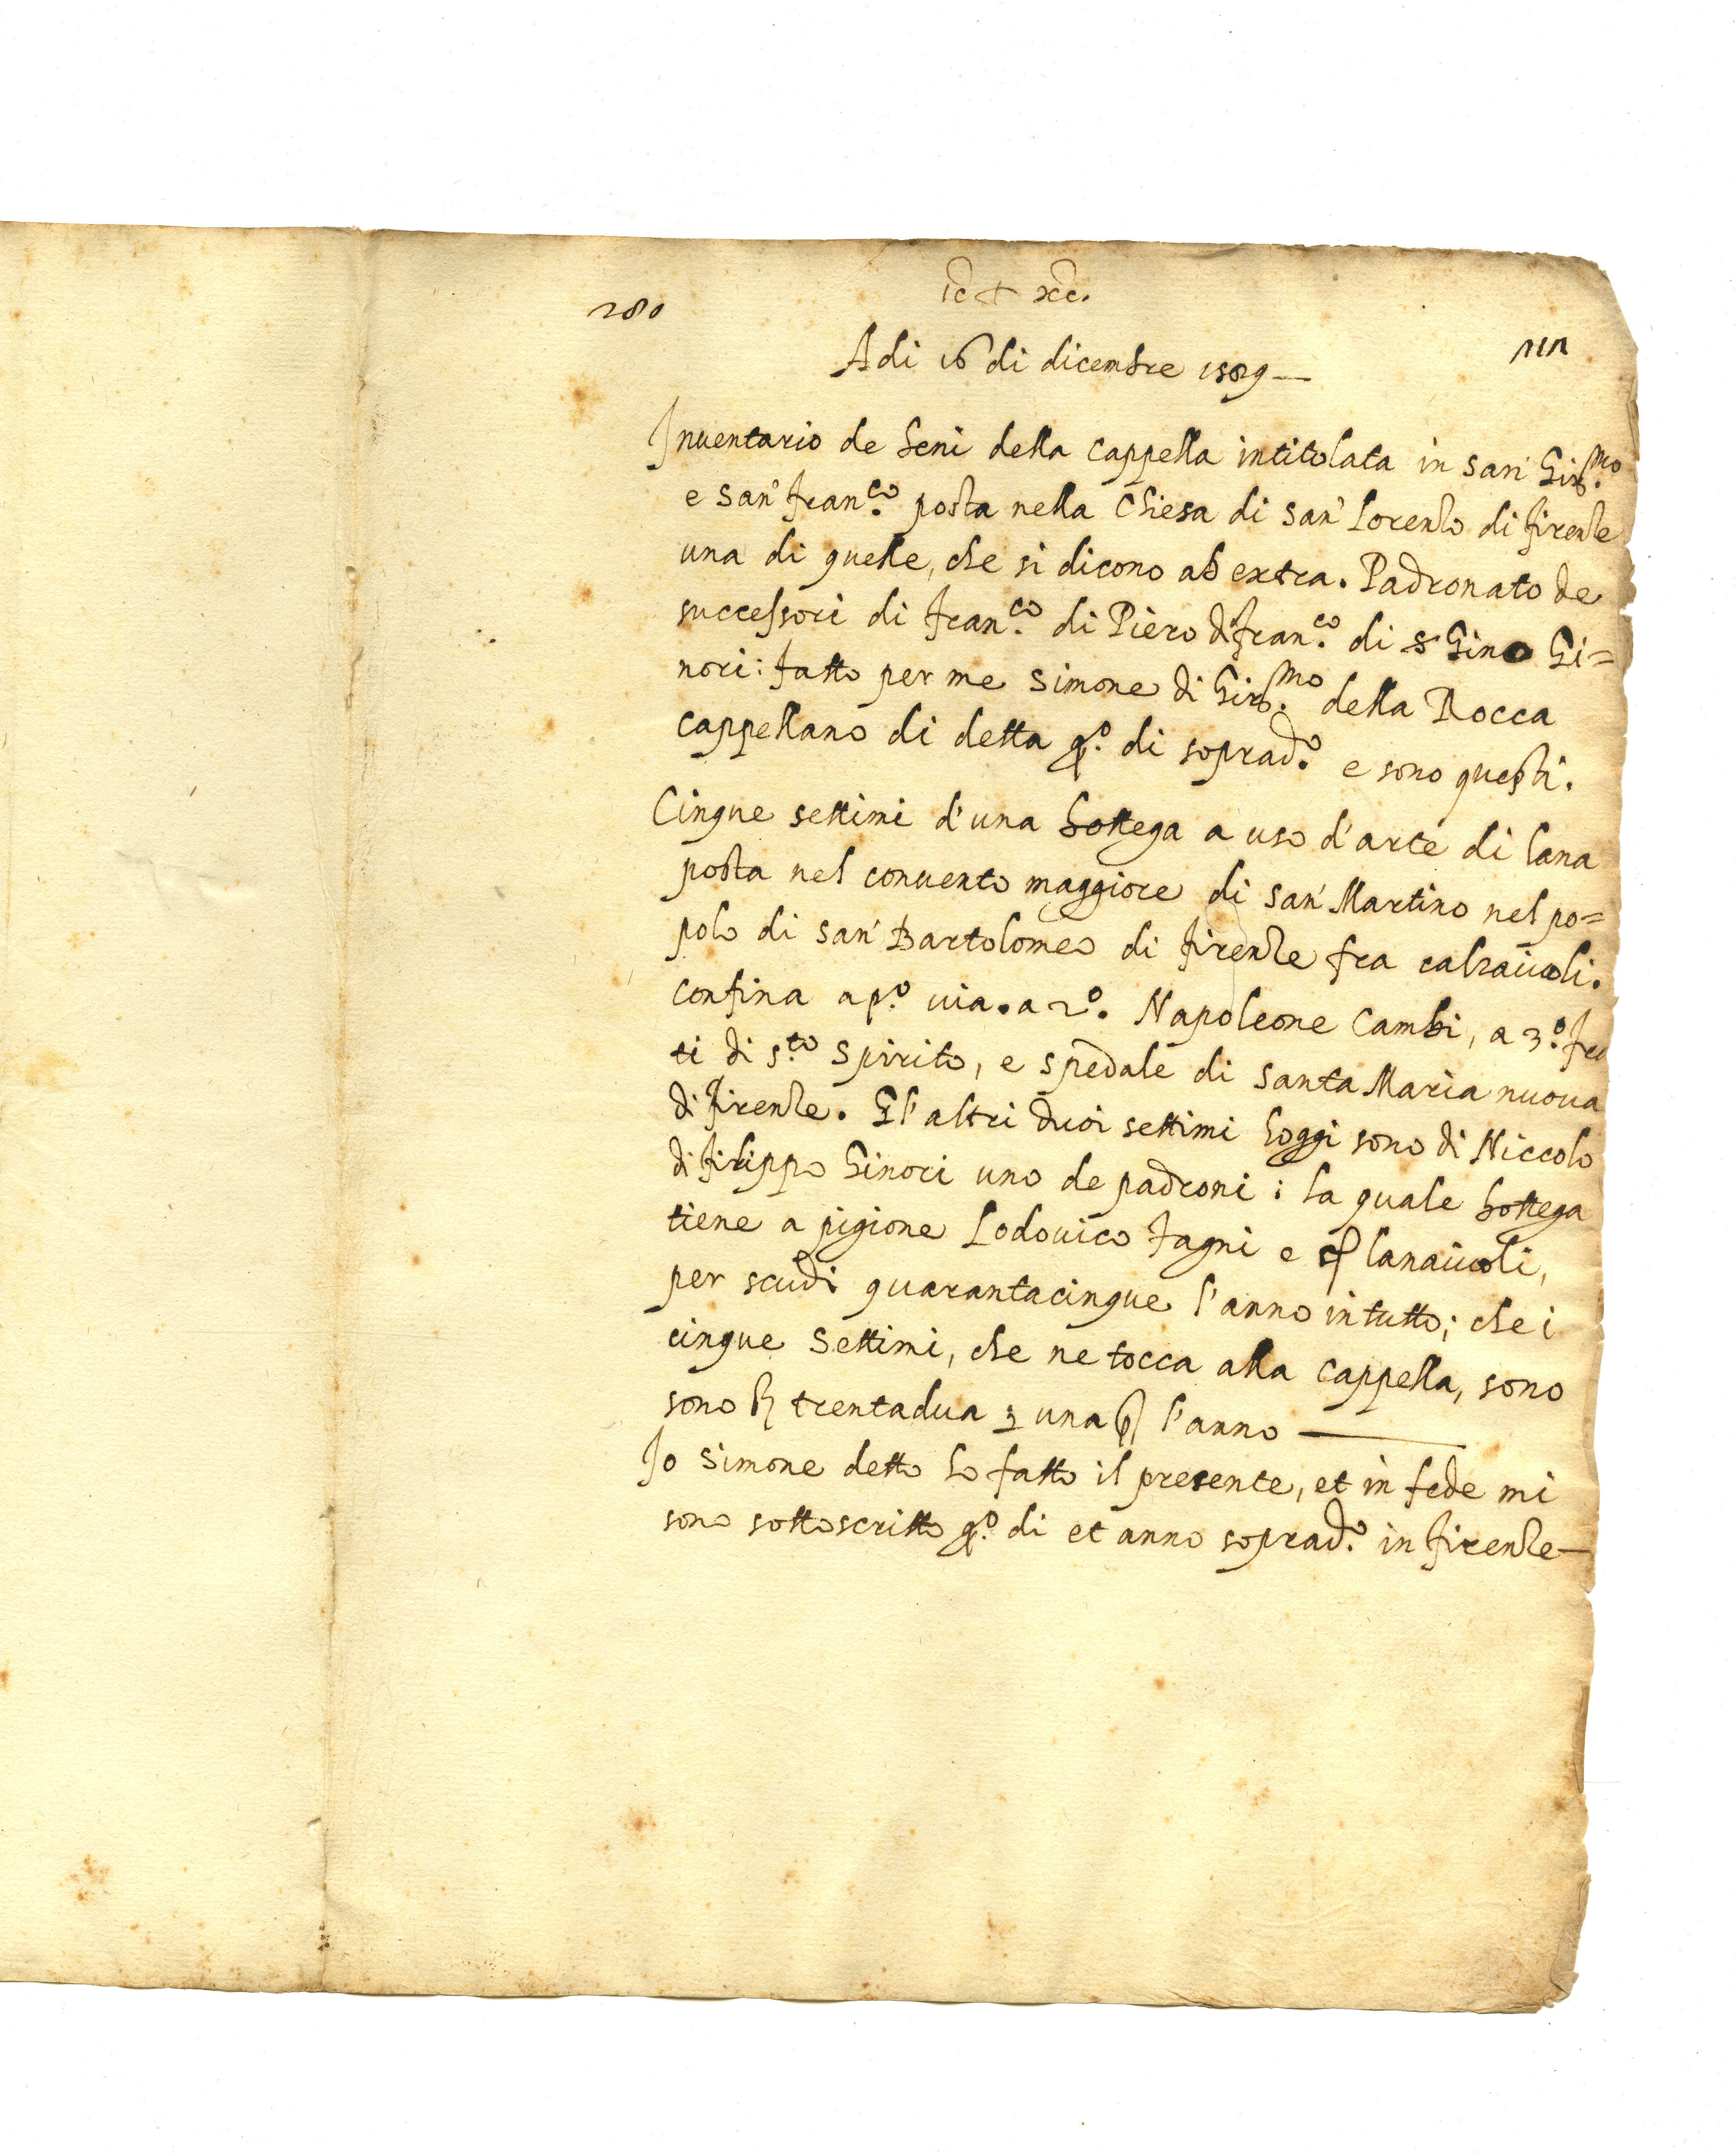 280
Adi 16 di dicembre 1589
Inuentario de beni della cappella intitolata in san Girol.mo
e san fran.co posta nella Chiesa di san Lorenzo di firenze
una di quelle, che si dicono ab extra. Padronato de
successori di fran.co di Piero di fran.co di Gino Gi=
nori: fatto per me Simone di Girol.mo della Rocca
cappellano di detta q.o di soprad.o e sono questi.
Cinque settimi d'una bottega a uso d'arte di lana
posta nel conuento maggiore di san Martino nel po=
polo di san Bartolomeo di firenze fra calzaiuoli.
confina a p.o uia. a 2.o Napoleone Cambi, a 3.o fra
ti di s.to Spirito, e spedale di Santa Maria nuoua
di firenze. Gl'altri duoi settimi hoggi sono di Niccolo
di filippo Ginori uno de padroni: la quale bottega
tiene a pigione Lodouico fagni e lanaiuoli,
per scudi quarantacinque l'anno in tutto; che i
cinque settimi, che ne tocca alla cappella, sono
sono trentadua una l'anno
Io Simone detto ho fatto il presente, et in fede mi
sono sottoscritto q.o di et anno soprad.o in firenze